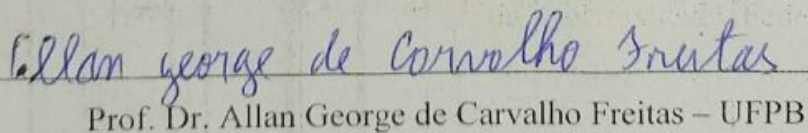 Allan george de Carvalho Freitas
Prof. Dr. Allan George de Carvalho Freitas – UFPB